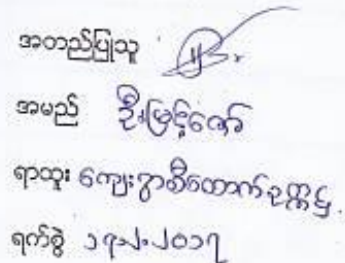 အတည်ပြုသူ
အမည် ဦးမြင့်ဇော်
ရာထူး ကျေးရွာစီထောက်ဥက္ကဋ္ဌ.
ရက်စွဲ ၁၇.၂.၂၀၁၇